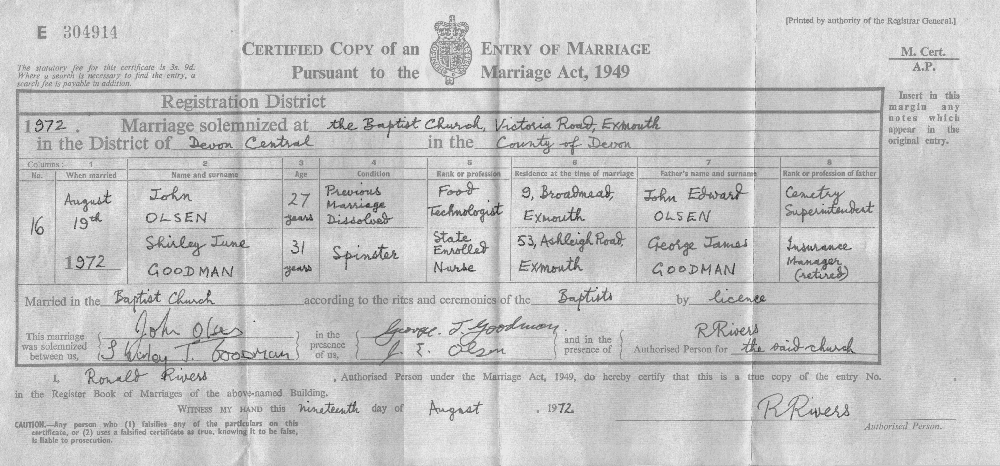 E 304914
[Printed by authority of the Registrar General.]
CERTIFIED COPY of an ENTRY OF MARRIAGE
Pursuant to the Marriage Act, 1949
M. Cert.
A.P.
The statutory fee for this certificate is 3s. 9d.
Where a search is necessary to find the entry, a
search fee is payable in addition.
Insert in this
margin any
notes which
appear in the
original entry.
Registration District
1972. Marriage solemnized at the Baptist Church, Victoria Road, Exmouth
in the District of Devon Central in the County of Devon
Columns:— 1 2 3 4 5 6 7 8
No. When married Name and surname Age Condition Rank or profession Residence at the time of marriage Father's name and surname Rank or profession of father
16 August 19th 1972
John OLSEN 27 years Previous Marriage Dissolved Food Technologist 9, Broadmead, Exmouth John Edward OLSEN Cemetry Superintendent
Shirley June GOODMAN 31 years Spinster State Enrolled Nurse 53, Ashleigh Road, Exmouth George James GOODMAN Insurance Manager (retired)
Married in the Baptist Church according to the rites and ceremonies of the Baptists by licence
This marriage was solemnized between us, John Olsen Shirley J. Goodman in the presence of us, George. J. Goodman. J. E. Olsen and in the presence of R Rivers Authorised Person for the said church
I, Ronald Rivers, Authorised Person under the Marriage Act, 1949, do hereby certify that this is a true copy of the entry No.
in the Register Book of Marriages of the above-named Building.
WITNESS MY HAND this nineteenth day of August, 1972.
R Rivers
Authorised Person.
CAUTION.—Any person who (1) falsifies any of the particulars on this
certificate, or (2) uses a falsified certificate as true, knowing it to be false,
is liable to prosecution.